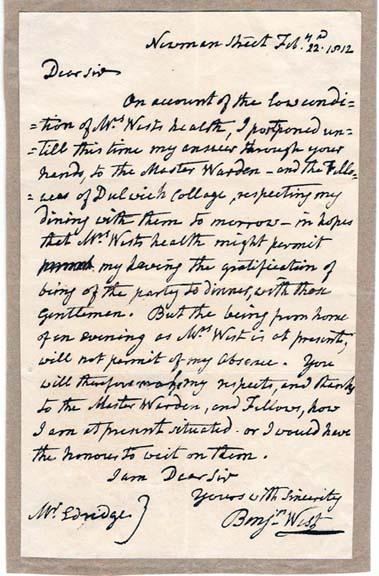 Newman Street Feb.ry 22.d 1812
Dear Sir
On account of the low condi=
=tion of Mrs Wests health, I postponed un=
=till this time my answer through your
hands, to the Master Warden – and the Fello=
=wes of Dulwich Collage, respecting my
dining with them to morrow – in hopes
that Mrs Wests health might permit
my having the gratification of
being of the party to dinner, with those
Gentlemen. But the being from home
of an evening as Mrs West is at present,
will not permit of my absence. You
will therefore make my respects, and thanks
to the Master Warden, and Fellows, how
I am at present situated – or I would have
the honour to wait on them.
I am Dear Sir
Yours with Sincerity
Mr Edridge } Benjn West